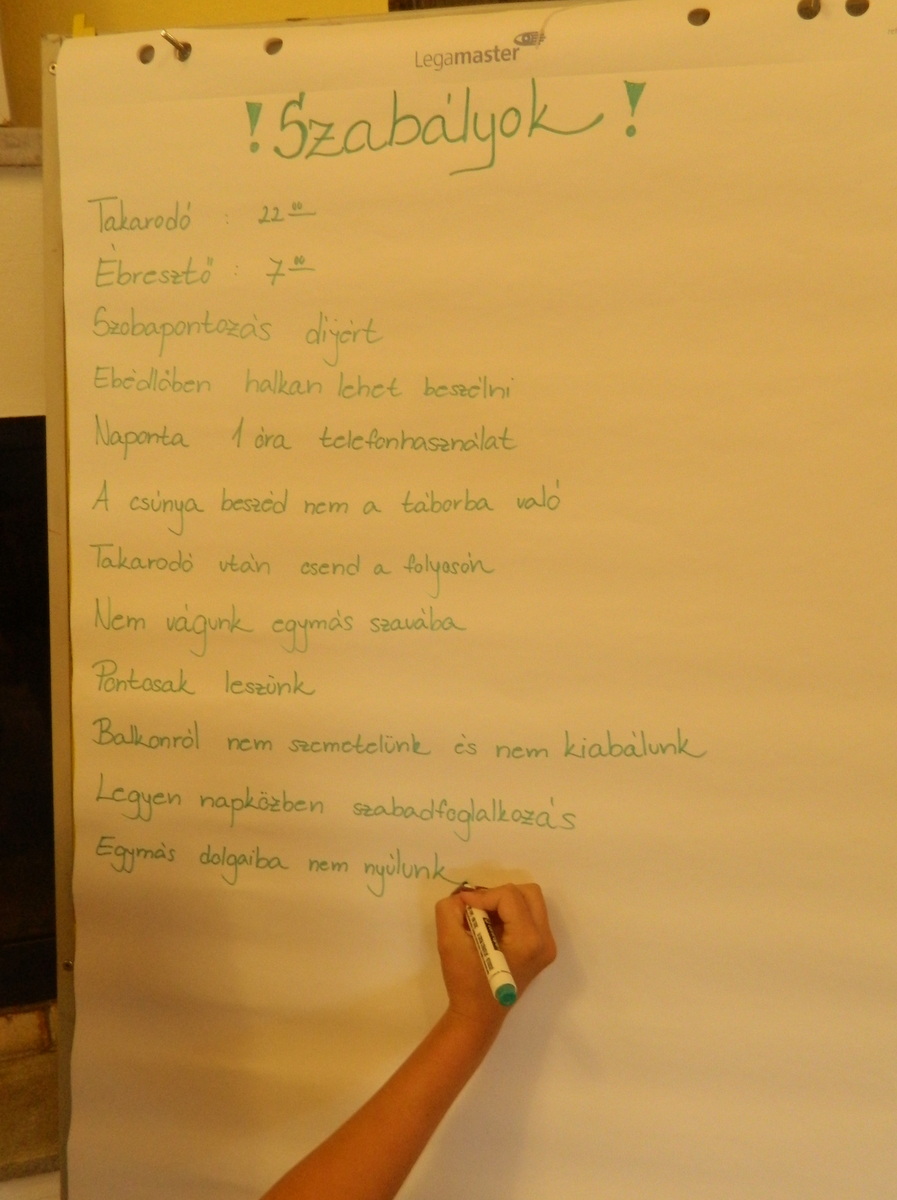 Legamaster
! Szabályok !
Takarodó : 22 00
Ébresztő : 7 00
Szobapontozás díjért
Ebédlőben halkan lehet beszélni
Naponta 1 óra telefonhasználat
A csúnya beszéd nem a táborba való
Takarodó után csend a folyosón
Nem vágunk egymás szavába
Pontosak leszünk
Balkonról nem szemetelünk és nem kiabálunk
Legyen napközben szabadfoglalkozás
Egymás dolgaiba nem nyúlunk